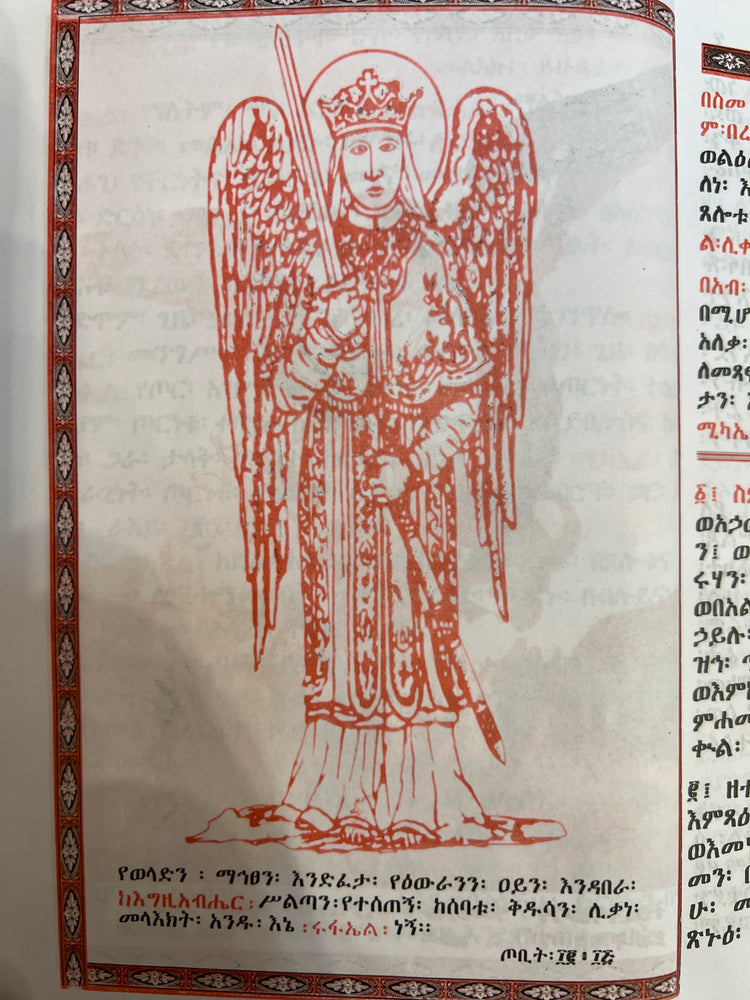 የወላድን ፡ ማኅፀን፡ እንድፈታ፡ የዕውራንን፡ ዐይን፡ እንዳበራ፡
ከእግዚአብሔር፡ ሥልጣን፡የተሰጠኝ፡ ከሰባቱ፡ ቅዱሳን፡ ሊቃነ፡
መላእክት፡ አንዱ፡ እኔ ፡ሩፋኤል፡ ነኝ።
ጦቢት፡፲፪፥፲፭
በስመ
ም፡በረ
ለነ፡
ጸሎቱ
ል፡ሊቀ
በአብ፡
በሚሆ
አለቃ፡
ለመጻፍ
ታን፡
ሚካኤ
፩፤ ስ
ወአኃ
ን፤ ወ
ሩሃን፡
ወበአል
ኃይሉ፡
ዝኅ፡
ወእም
ምሐመ
ቍል፡
፪፤ ዘተ
እምጻዕ
ወእመ
መን፡
ሁ፡ መ
ጽኑዕ፡